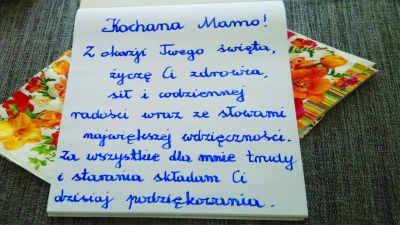 Kochana Mamo!
Z okazji Twego święta,
życzę Ci zdrowia,
sił i codziennej
radości wraz ze słowami
największej wdzięczności.
Za wszystkie dla mnie trudy
i starania składam Ci
dzisiaj podziękowania.